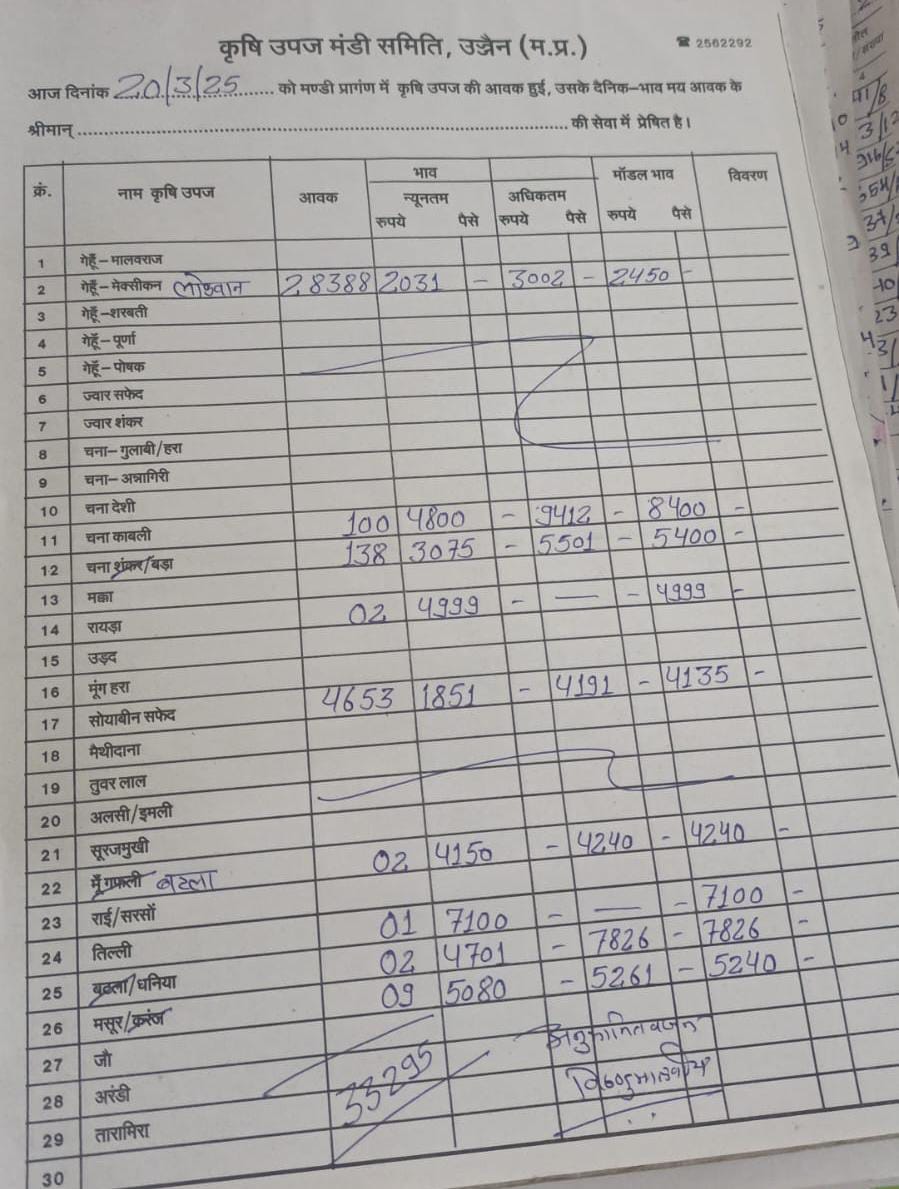 कृषि उपज मंडी समिति, उज्जैन (म.प्र.) ☎ 2562292
आज दिनांक 20/3/25 को मण्डी प्रागंण में कृषि उपज की आवक हुई, उसके दैनिक–भाव मय आवक के
श्रीमान् ........ की सेवा में प्रेषित है।
भाव
क्रं. नाम कृषि उपज आवक न्यूनतम अधिकतम मॉडल भाव विवरण
रुपये पैसे रुपये पैसे रुपये पैसे
1 गेहूँ–मालवराज
2 गेहूँ–मेक्सीकन लोकवान 28388 2031 - 3002 - 2450 -
3 गेहूँ–शरबती
4 गेहूँ–पूर्णा
5 गेहूँ–पोषक
6 ज्वार सफेद
7 ज्वार शंकर
8 चना–गुलाबी/हरा
9 चना–अन्नागिरी
10 चना देशी
11 चना काबली 100 4800 - 9412 - 8400 -
12 चना शंकर/बड़ा 138 3075 - 5501 - 5400 -
13 मक्का
14 रायड़ा 02 4999 - — - 4999 -
15 उड़द
16 मूंग हरा
17 सोयाबीन सफेद 4653 1851 - 4191 - 4135 -
18 मैथीदाना
19 तुवर लाल
20 अलसी/इमली
21 सूरजमुखी
22 मूँगफली बटला 02 4150 - 4240 - 4240 -
23 राई/सरसों
24 तिल्ली 01 7100 - — - 7100 -
25 बटला/धनिया 02 4701 - 7826 - 7826 -
26 मसूर/करंज 09 5080 - 5261 - 5240 -
27 जौ अनुमानित वजन
28 अरंडी 33295
29 तारामिरा
30